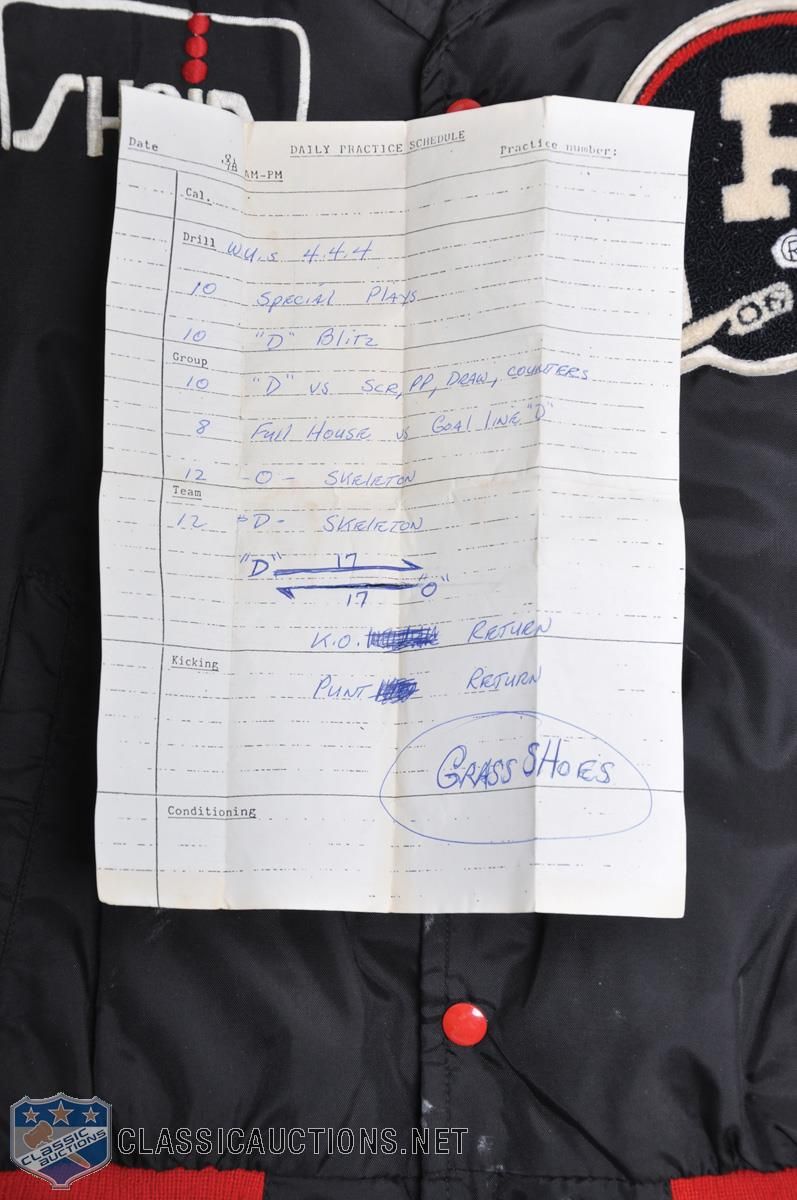 R
®
DAILY PRACTICE SCHEDULE
Date Practice number:
AM-PM
Cal.
Drill W.U.s 4.4.4
10 Special Plays
10 "D" Blitz
Group
10 "D" vs SCR, PP, DRAW, COUNTERS
8 Full House vs Goal line "D"
12 -O- SKeleton
Team
12 -D- SKeleton
"D" 17
17 "O"
K.O. RETURN
Kicking
Punt RETURN
GRASS SHOES
Conditioning
CLASSIC AUCTIONS
CLASSICAUCTIONS.NET